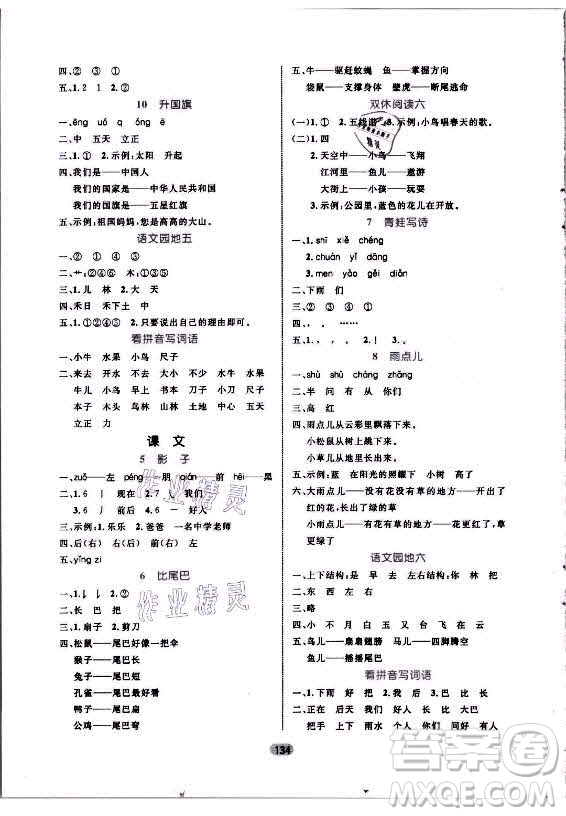 四、② ③ ①
五、1. 2 1 2. ②
10 升国旗
一、ēng uó q óng ē
二、中 五天 立正
三、1. ① 2. 示例:太阳 升起
四、我们是——中国人
我们的国家是——中华人民共和国
我们的国旗是——五星红旗
五、示例:祖国妈妈,您是高高的大山。
语文园地五
一、② ② ① ②
二、艹:①②⑤⑥ 木:③④⑦⑧
三、1. 儿 林 2. 早 草
四、禾日 禾下土 中
五、1. ①②③④ 2. 只要说出自己的理由即可。
看拼音写词语
一、小牛 水果 小鸟 尺子
二、来去 开水 不是 水果 去 小 不少
牛儿 小鸟 早上 书本 刀子 小刀 尺子
本子 木头 土木 山林 土地 中心 五天
立正 力
课文
5 影子
一、zuǒ——左 péng——朋 qián——前 hēi——黑
二、1. 6 亅 现在 2. 丿 人
3. 6 丿 前 4. 6 一 好人
三、示例:1. 乐乐 2. 爸爸 一名中学老师
四、后(右) 右(后) 前(左) 左(前)
五、yǐng zi
6 比尾巴
二、长 巴 把
三、1. 扇子 2. ③ 3. ②
四、松鼠——尾巴好像一把伞
猴子——尾巴长
兔子——尾巴短
孔雀——尾巴最好看
鸭子——尾巴扁
公鸡——尾巴弯
五、牛——驱赶蚊蝇 鱼——掌握方向
袋鼠——支撑身体 壁虎——断尾逃命
双休阅读六
(一)1. ② 2. 五线谱 3. 示例:小鸟唱春天的歌。
(二)1. 四
2. 天空中——小鸟——飞翔
江河里——鱼儿——遨游
大街上——小孩——玩耍
3. 示例:公园里,蓝色的花儿在开放。
7 青蛙写诗
一、1. shī xiě chéng
2. chuàn yí
3. men yào gěi diǎn
二、下雨 们
三、② ④ ① ③
四、, 。 ……
8 雨点儿
一、shù shù cháng zhǎng
二、半 问 有 从 你们
三、高 红
四、雨点儿从云彩里飘落下来。
小松鼠从树上跳下来。
小草儿从地里长出来。
五、示例:蓝 在阳光的照耀下 满山的
六、大雨点儿——没有花没有草的地方——
开出红的花,长出绿的草
小雨点儿——有花有草的地方——花更红,草
更绿了
语文园地六
一、上下结构:是 早 去 左右结构:你 他 们
二、东 西 左 右
三、略
四、小 不 是 风 来 太 云 飞 去
五、鸟儿——扇扇翅膀 马儿——四脚腾空
鱼儿——摇摇尾巴
看拼音写词语
一、1. 下雨 好 把 2. 巴 比 长
二、正在 后天 我 好 长 比 巴 把
把手 上下 雨水 个人 你们 问好 有人
134
作业精灵
作业精灵
答案圈
MXQE.COM